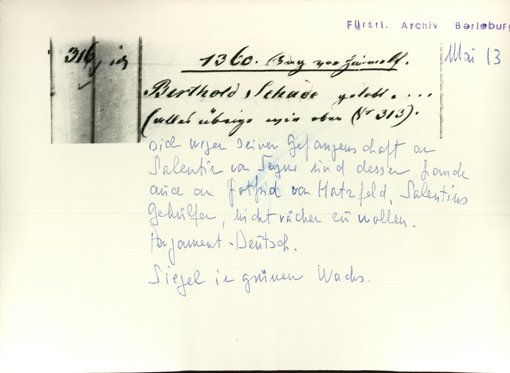 Fürstl. Archiv Berleburg
Mai 13
316
1360.
Berthold Schade gelobt. ...
(alles übrige wie oben (Nr 313).
sich wegen seiner Gefangenschaft an
Salentin von Sayns und dessen Lande
auch an Gotfrid von Hatzfeld, Salentins
Gehülfen, nicht rächen zu wollen.
Pergament. Deutsch.
Siegel in grünem Wachs.